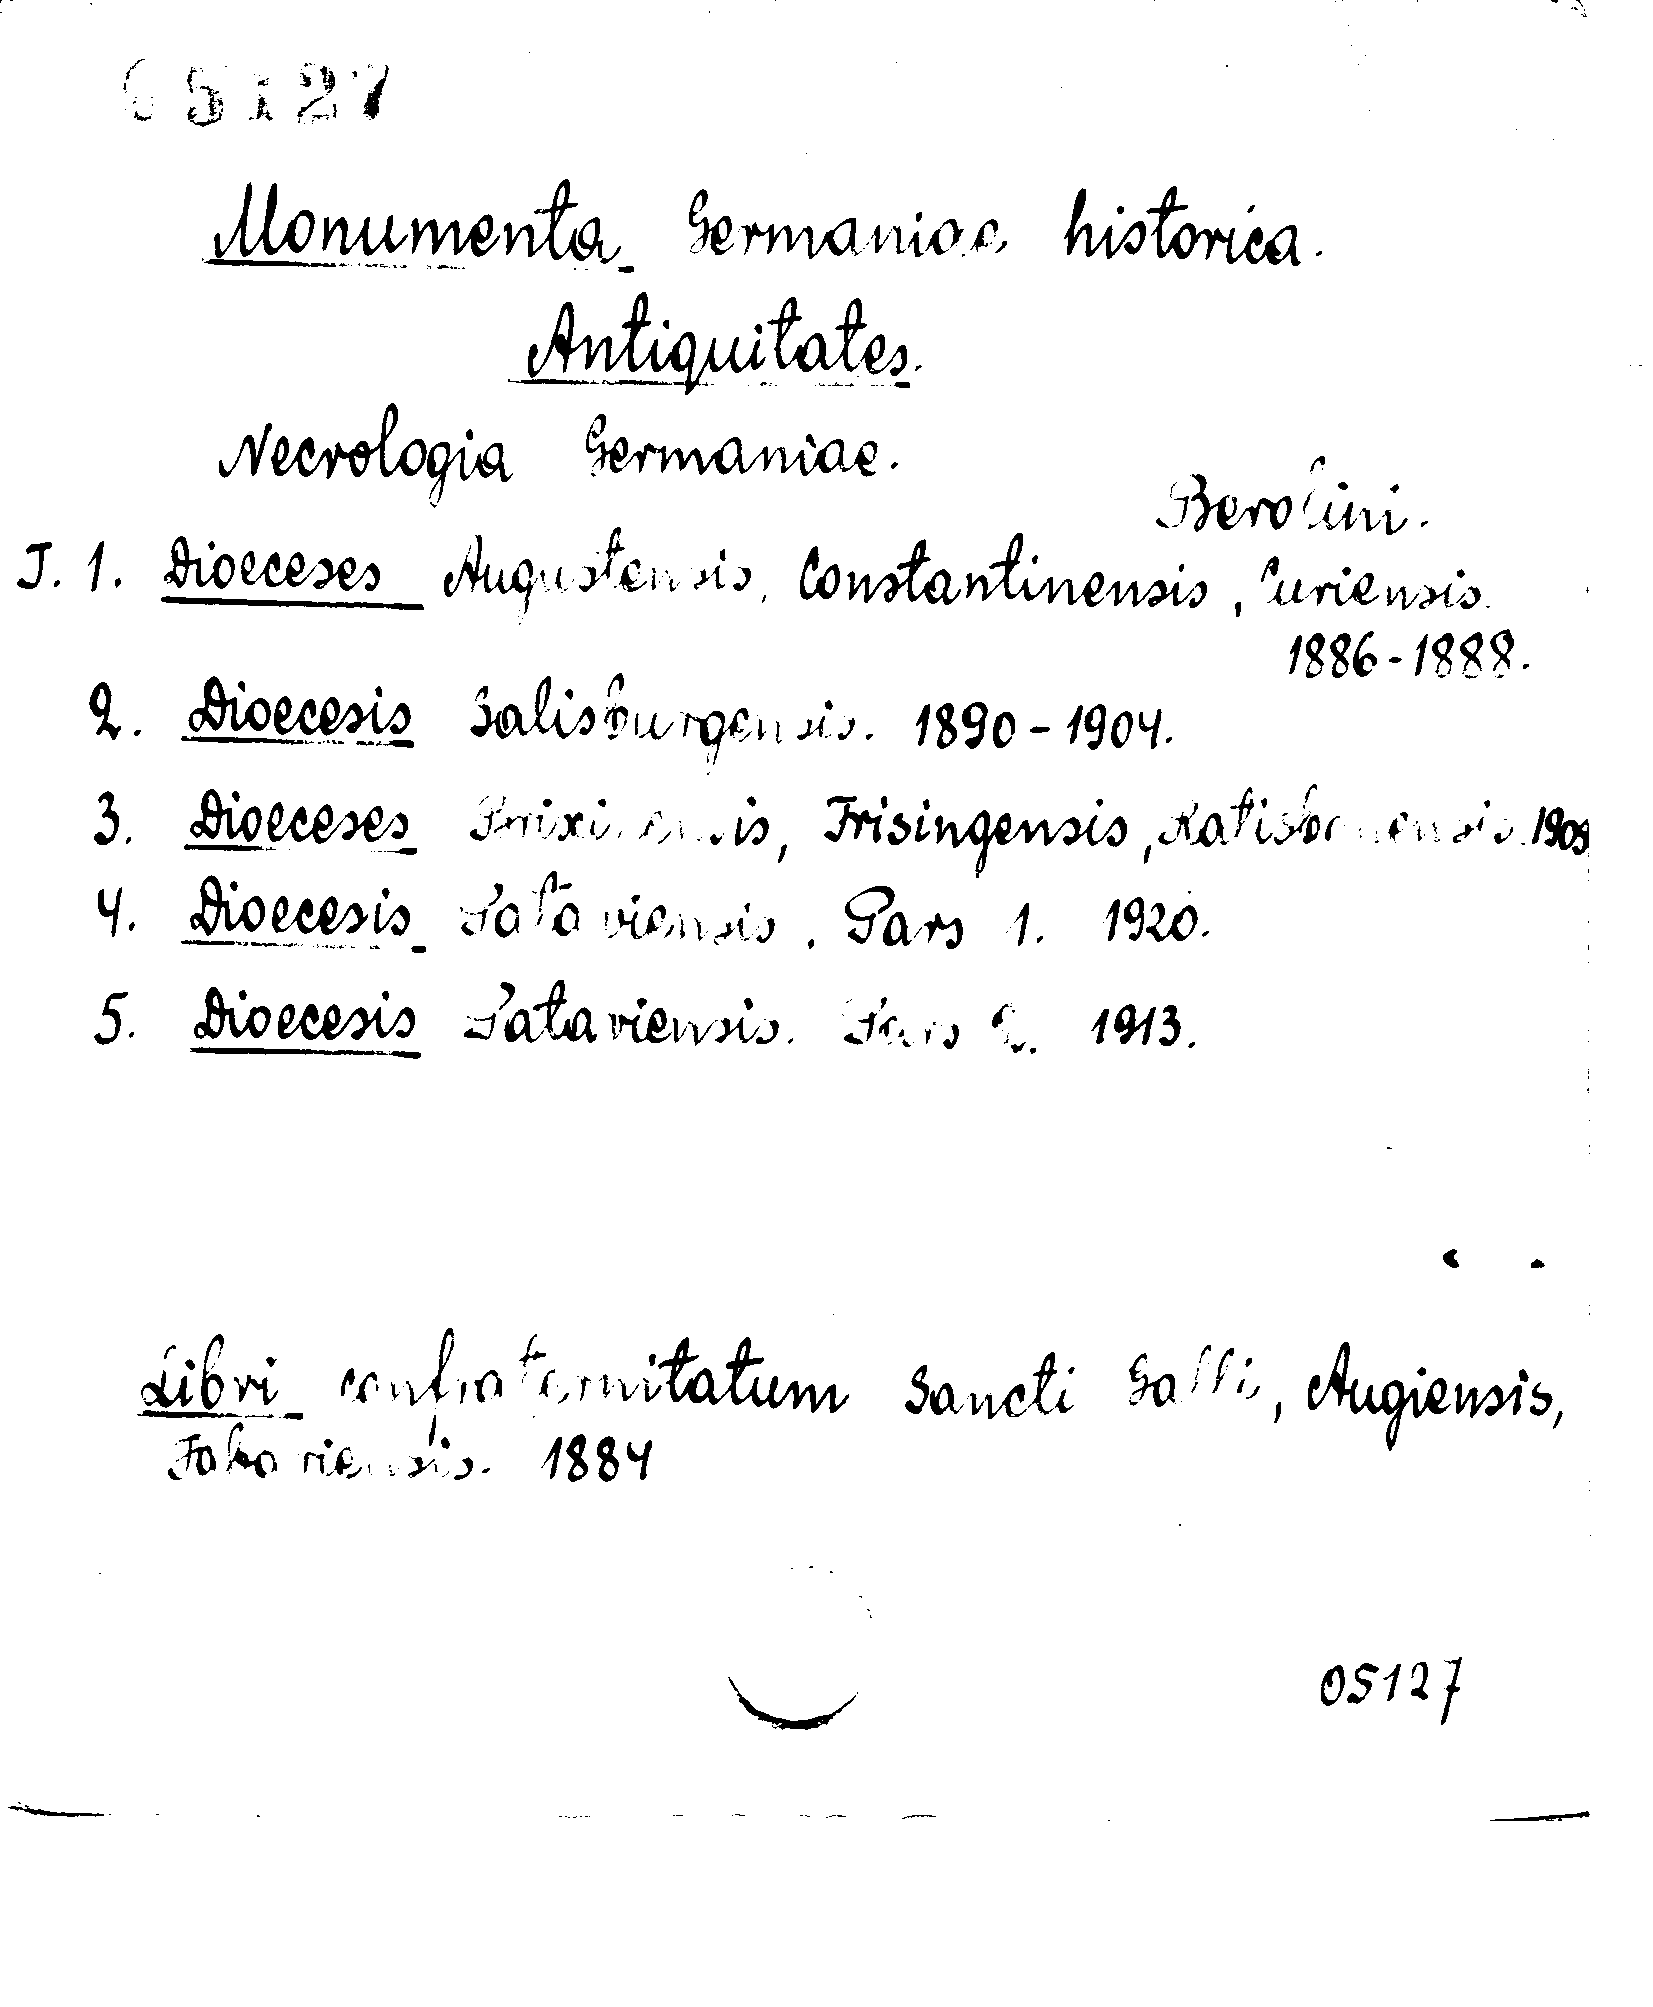 05127
Monumenta Germaniae historica.
Antiquitates.
Necrologia Germaniae.
Berolini.
J. 1. Dioeceses Augustensis, Constantinensis, Curiensis.
1886-1888.
2. Dioecesis Salisburgensis. 1890-1904.
3. Dioeceses Brixinensis, Frisingensis, Ratisbonensis. 1905
4. Dioecesis Pataviensis. Pars 1. 1920.
5. Dioecesis Pataviensis. Pars 2. 1913.
Libri confraternitatum Sancti Galli, Augiensis,
Fabariensis. 1884
05127